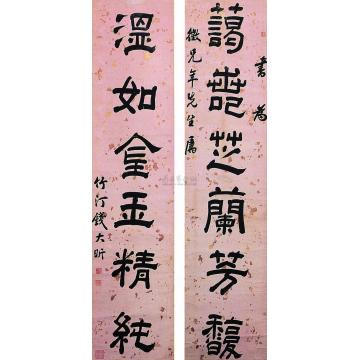 書為
藹若芝蘭芳馥
徵兄年先生屬
溫如金玉精純
竹汀錢大昕